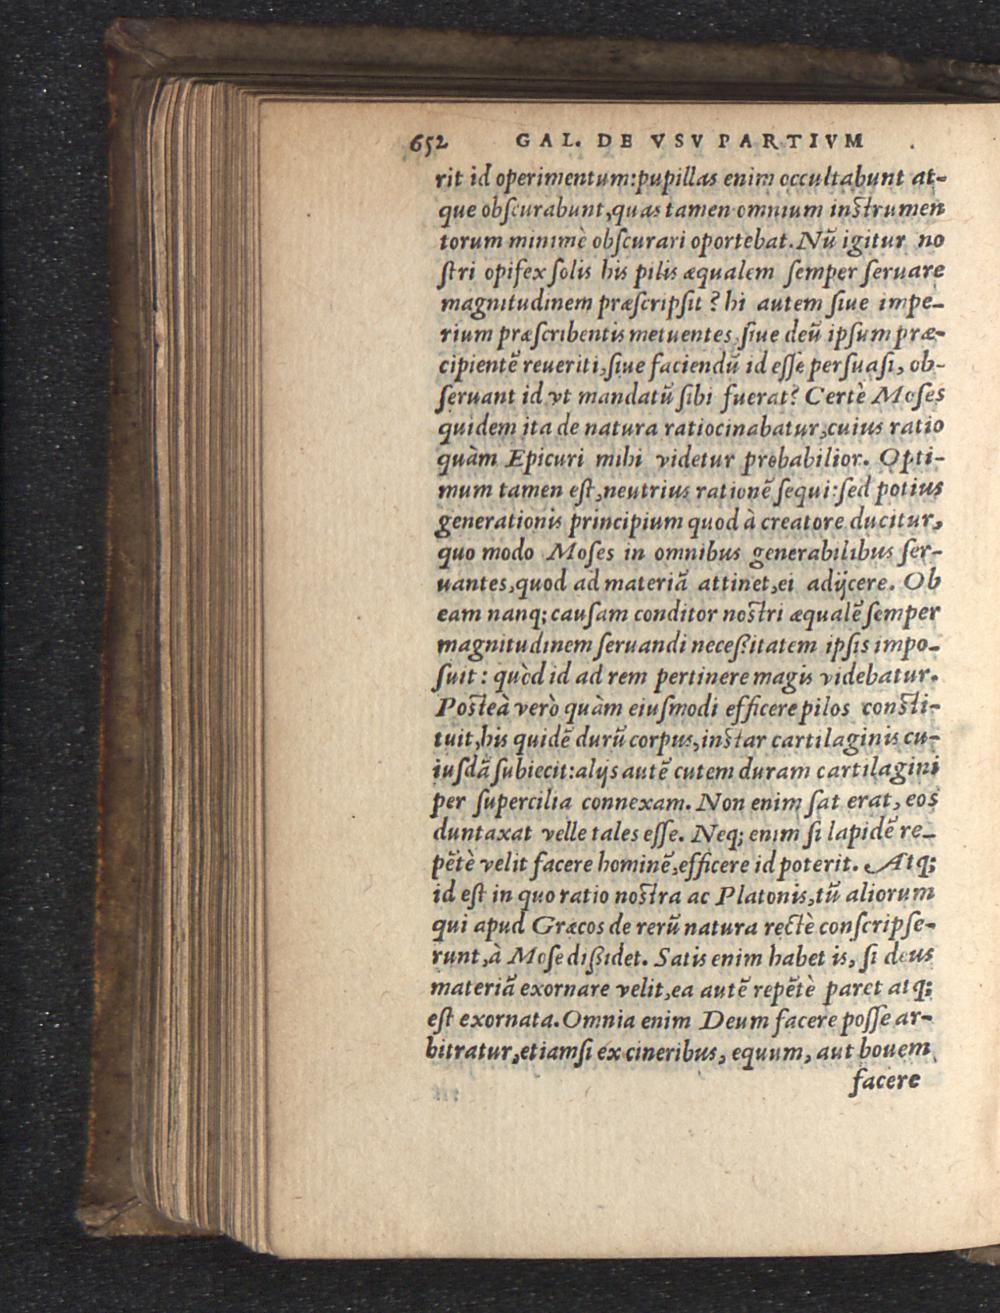 652 GAL. DE VSV PARTIVM
rit id operimentum:pupillas enim occultabunt at-
que obſcurabunt,quas tamen omnium inſtrumen
torum minimè obſcurari oportebat.Nū igitur no
ſtri opifex ſolis his pilis æqualem ſemper ſeruare
magnitudinem præſcripſit ? hi autem ſiue impe-
rium præſcribentis metuentes,ſiue deū ipſum præ-
cipientē reueriti,ſiue faciendū id eſſe perſuaſi, ob-
ſeruant id vt mandatū ſibi fuerat? Certè Moſes
quidem ita de natura ratiocinabatur,cuius ratio
quàm Epicuri mihi videtur probabilior. Opti-
mum tamen eſt,neutrius rationē ſequi:ſed potius
generationis principium quod à creatore ducitur,
quo modo Moſes in omnibus generabilibus ſer-
uantes,quod ad materiā attinet,ei adijcere. Ob
eam nanq; cauſam conditor noſtri æqualē ſemper
magnitudinem ſeruandi neceſsitatem ipſis impo-
ſuit : quòd id ad rem pertinere magis videbatur.
Poſteà verò quàm eiuſmodi efficere pilos conſti-
tuit,his quidē durū corpus,inſtar cartilaginis cu-
iuſdā ſubiecit:alijs autē cutem duram cartilagini
per ſupercilia connexam. Non enim ſat erat, eos
duntaxat velle tales eſſe. Neq; enim ſi lapidē re-
pētè velit facere hominē,efficere id poterit. Atq;
id eſt in quo ratio noſtra ac Platonis,tū aliorum
qui apud Græcos de rerū natura rectè conſcripſe-
runt,à Moſe diſsidet. Satis enim habet is, ſi deus
materiā exornare velit,ea autē repētè paret atq;
eſt exornata.Omnia enim Deum facere poſſe ar-
bitratur,etiamſi ex cineribus, equum, aut bouem
facere